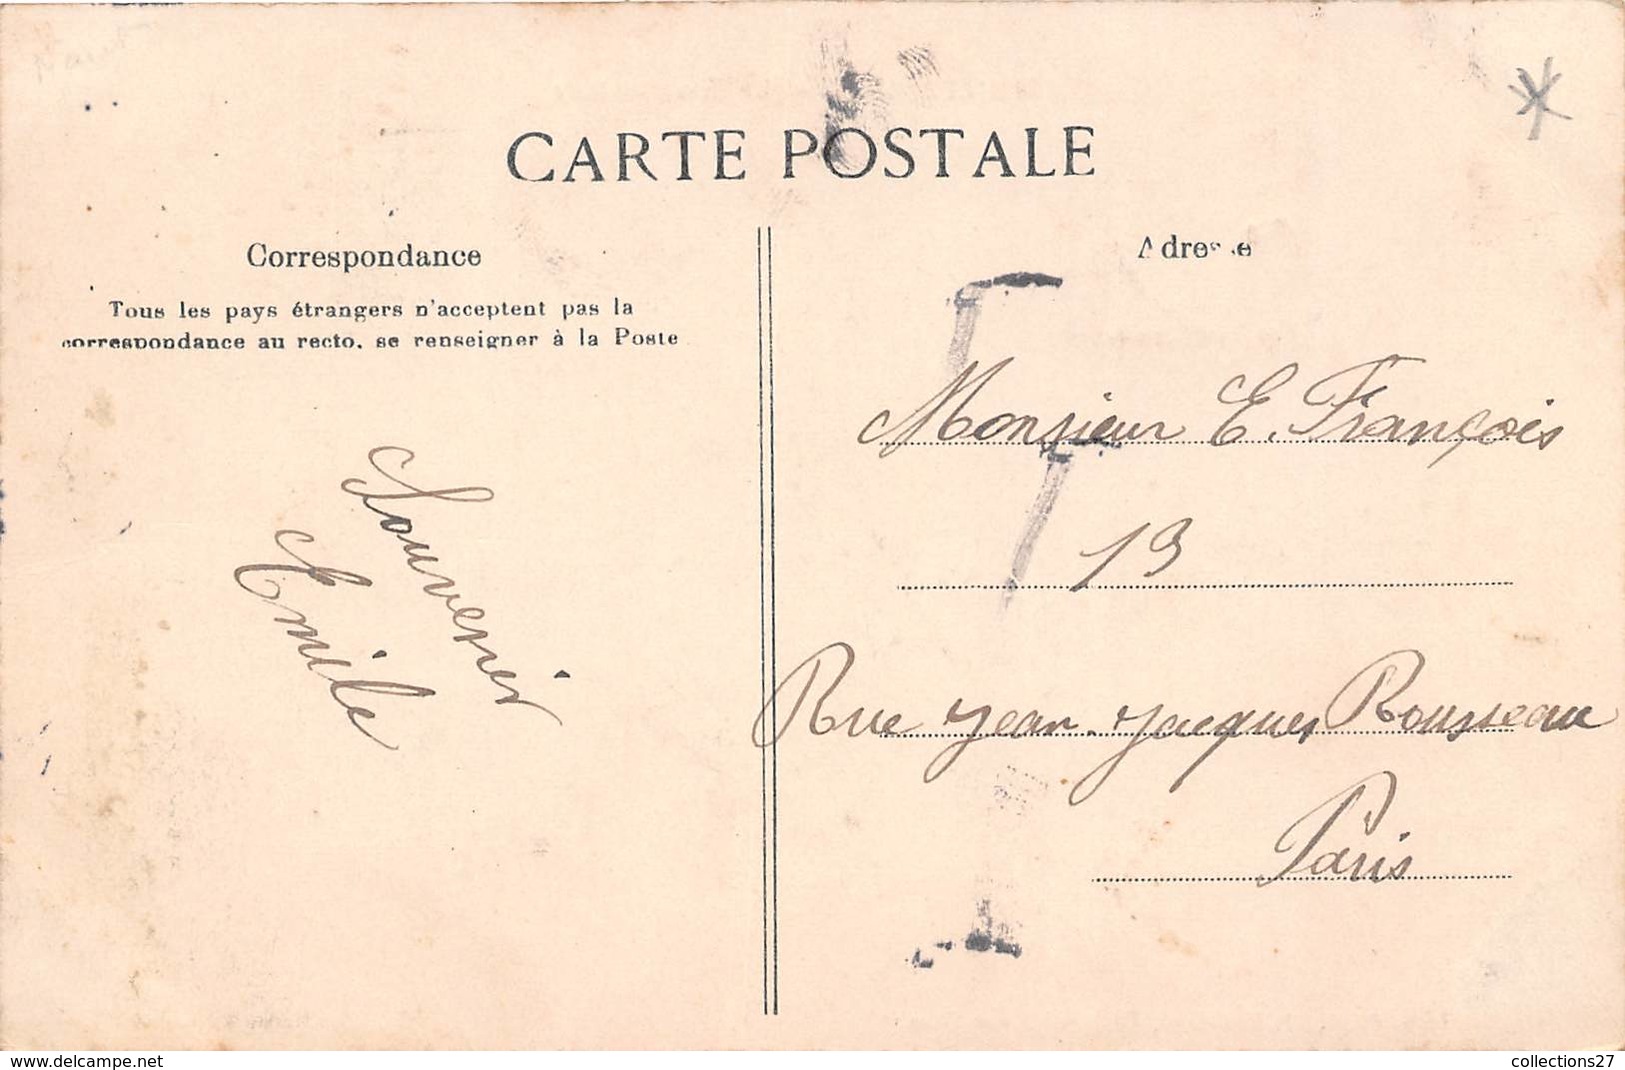 CARTE POSTALE
Correspondance
Tous les pays étrangers n'acceptent pas la
correspondance au recto, se renseigner à la Poste
Souvenir
Emile
Adresse
Monsieur E. François
13
Rue Jean-Jacques Rousseau
Paris
www.delcampe.net
collections27